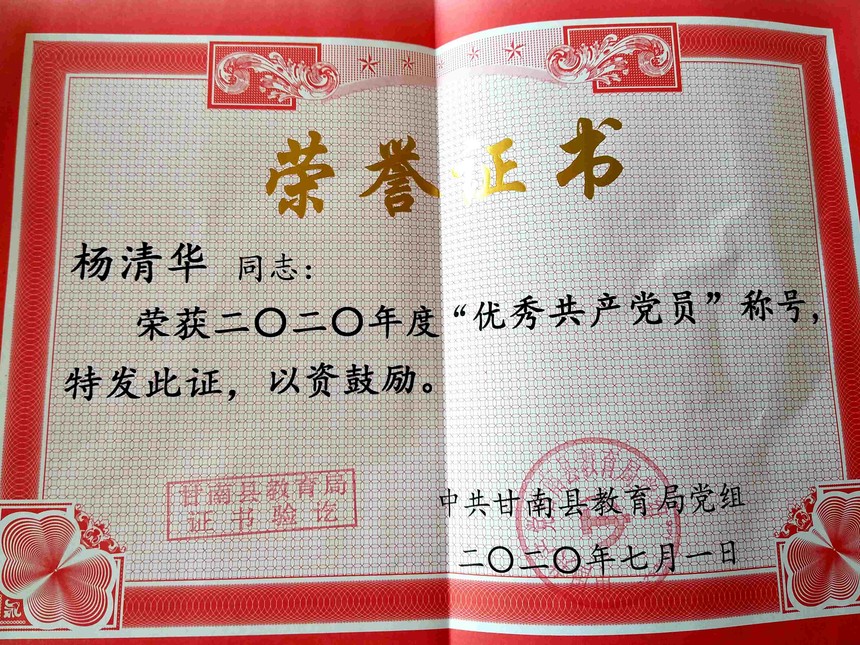 荣誉证书
杨清华 同志：
荣获二〇二〇年度“优秀共产党员”称号，
特发此证，以资鼓励。
甘南县教育局
证书验讫
中共甘南县教育局党组
二〇二〇年七月一日